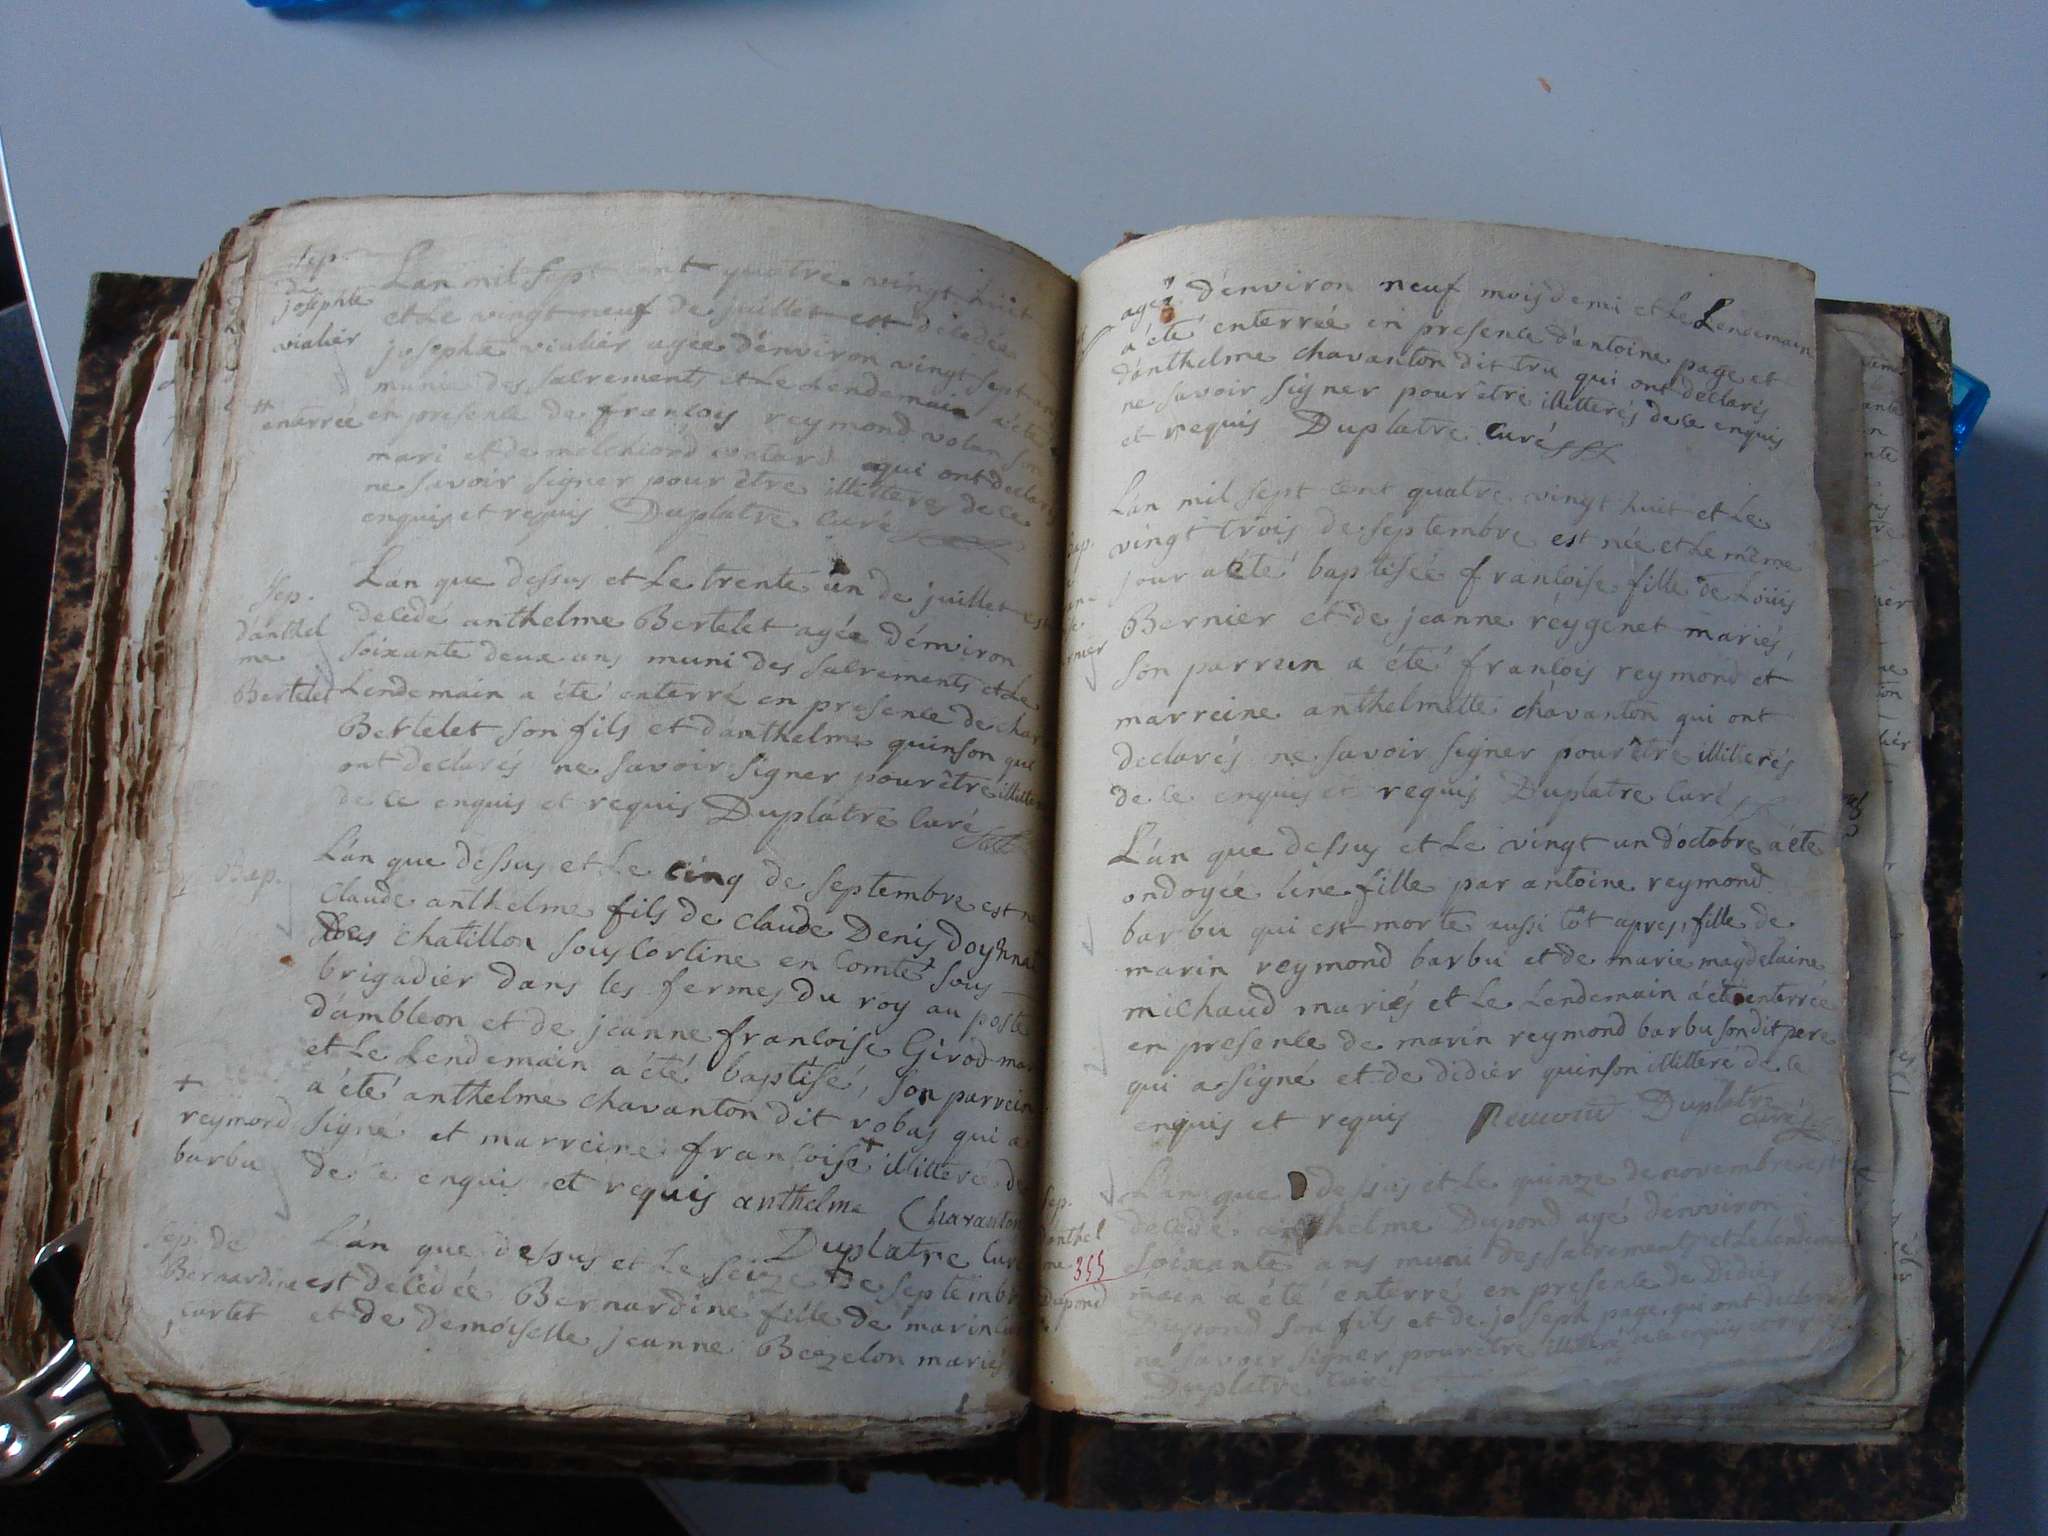 Sep.
de
josephte
vialier
L'an mil sept cent quatre vingt huit
et Le vingt neuf de juillet est décédée
josephte vialier agée d'environ vingt sept ans
munie des sacrements et Le Lendemain a été
enterrée en presence de françois reymond volan son
mari et de melchiord volard qui ont declarés
ne savoir signer pour être illitterés de ce
enquis et requis Duplatre Curé
Sep.
d'anthel
me
Bertelet
L'an que dessus et Le trente un de juillet est
decedé anthelme Bertelet agée d'environ
soixante deux ans muni des sacrements et Le
Lendemain a été enterré en presence de char
Bertelet son fils et d'anthelme quinson qui
ont declarés ne savoir signer pour être illitter
de ce enquis et requis Duplatre Curé
Bap.
L'an que dessus et Le cinq de septembre est n
Claude anthelme fils de Claude Denis
chatillon sous Cortine en Comté sous
brigadier dans les fermes du roy au poste
d'ambleon et de jeanne françoise Girod mar
et Le Lendemain a été baptisé, son parrein
a été anthelme chavanton dit robas qui a
signé et marreine françoise + illitteré de
de ce enquis et requis anthelme Chavanton
Duplatre Curé
+
reymond
barbu
Sep. de
Bernardine
Carlet
L'an que dessus et Le seize de septembr
est decedée Bernardine fille de marin
et de demoiselle jeanne Bozelon mariés
agée d'environ neuf mois demi et Le Lendemain
a été enterrée en presence d'antoine page et
d'anthelme chavanton dit tru qui ont declarés
ne savoir signer pour être illitterés de ce enquis
et requis Duplatre Curé
L'an mil sept cent quatre vingt huit et Le
vingt trois de septembre est née et Le même
jour a été baptisée françoise fille de Loüis
Bernier et de jeanne reygenet mariés,
son parrein a été françois reymond et
marreine anthelmette chavanton qui ont
declarés ne savoir signer pour être illitterés
de ce enquis et requis Duplatre Curé
L'an que dessus et Le vingt un d'octobre a été
ondoyée une fille par antoine reymond
barbu qui est morte aussi tôt apres, fille de
marin reymond barbu et de marie magdelaine
michaud mariés et Le Lendemain a été enterrée
en presence de marin reymond barbu son dit pere
qui a signé et de didier quinson illitteré de ce
enquis et requis Remond Duplatre
Curé
Sep.
d'anthel
me
Dupond
355
L'an que dessus et Le quinze de novembre est
decedé anthelme Dupond agé d'environ
soixante ans muni des sacrements et Le Lende
main a été enterré en presence de Didier
Dupond son fils et de joseph page qui ont declarés
ne savoir signer pour être illitteré de ce enquis et requis
Duplatre Curé